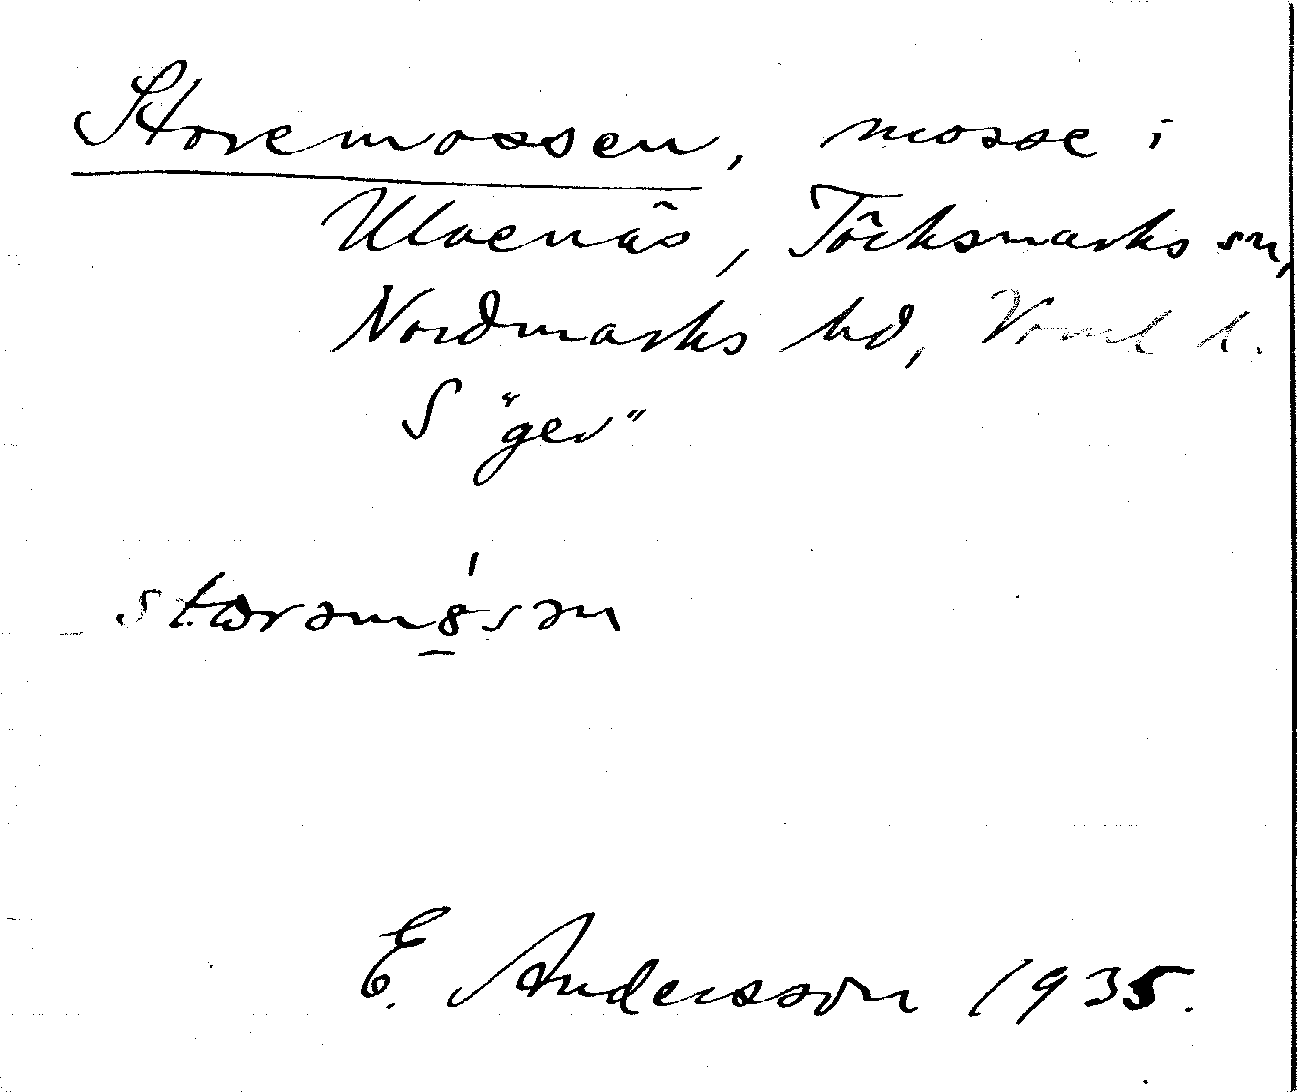 Storemossen, mosse i
Ulvenäs, Töcksmarks sn,
Nordmarks hd, Värml l.
S "ger"
E. Andersson 1935.